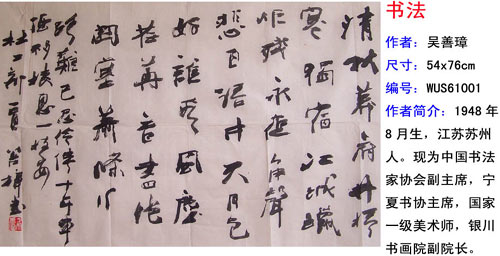 清秋幕府井梧
寒獨宿江城蠟
炬殘永夜角聲
悲自語中天月色
好誰看風塵
荏苒音書絕
關塞蕭條行
路難已忍伶俜十年事
強移棲息一枝安
杜工部 善璋書
书法
作者：吴善璋
尺寸：54x76cm
编号：WUS61001
作者简介：1948年
8月生，江苏苏州
人。现为中国书法
家协会副主席，宁
夏书协主席，国家
一级美术师，银川
书画院副院长。